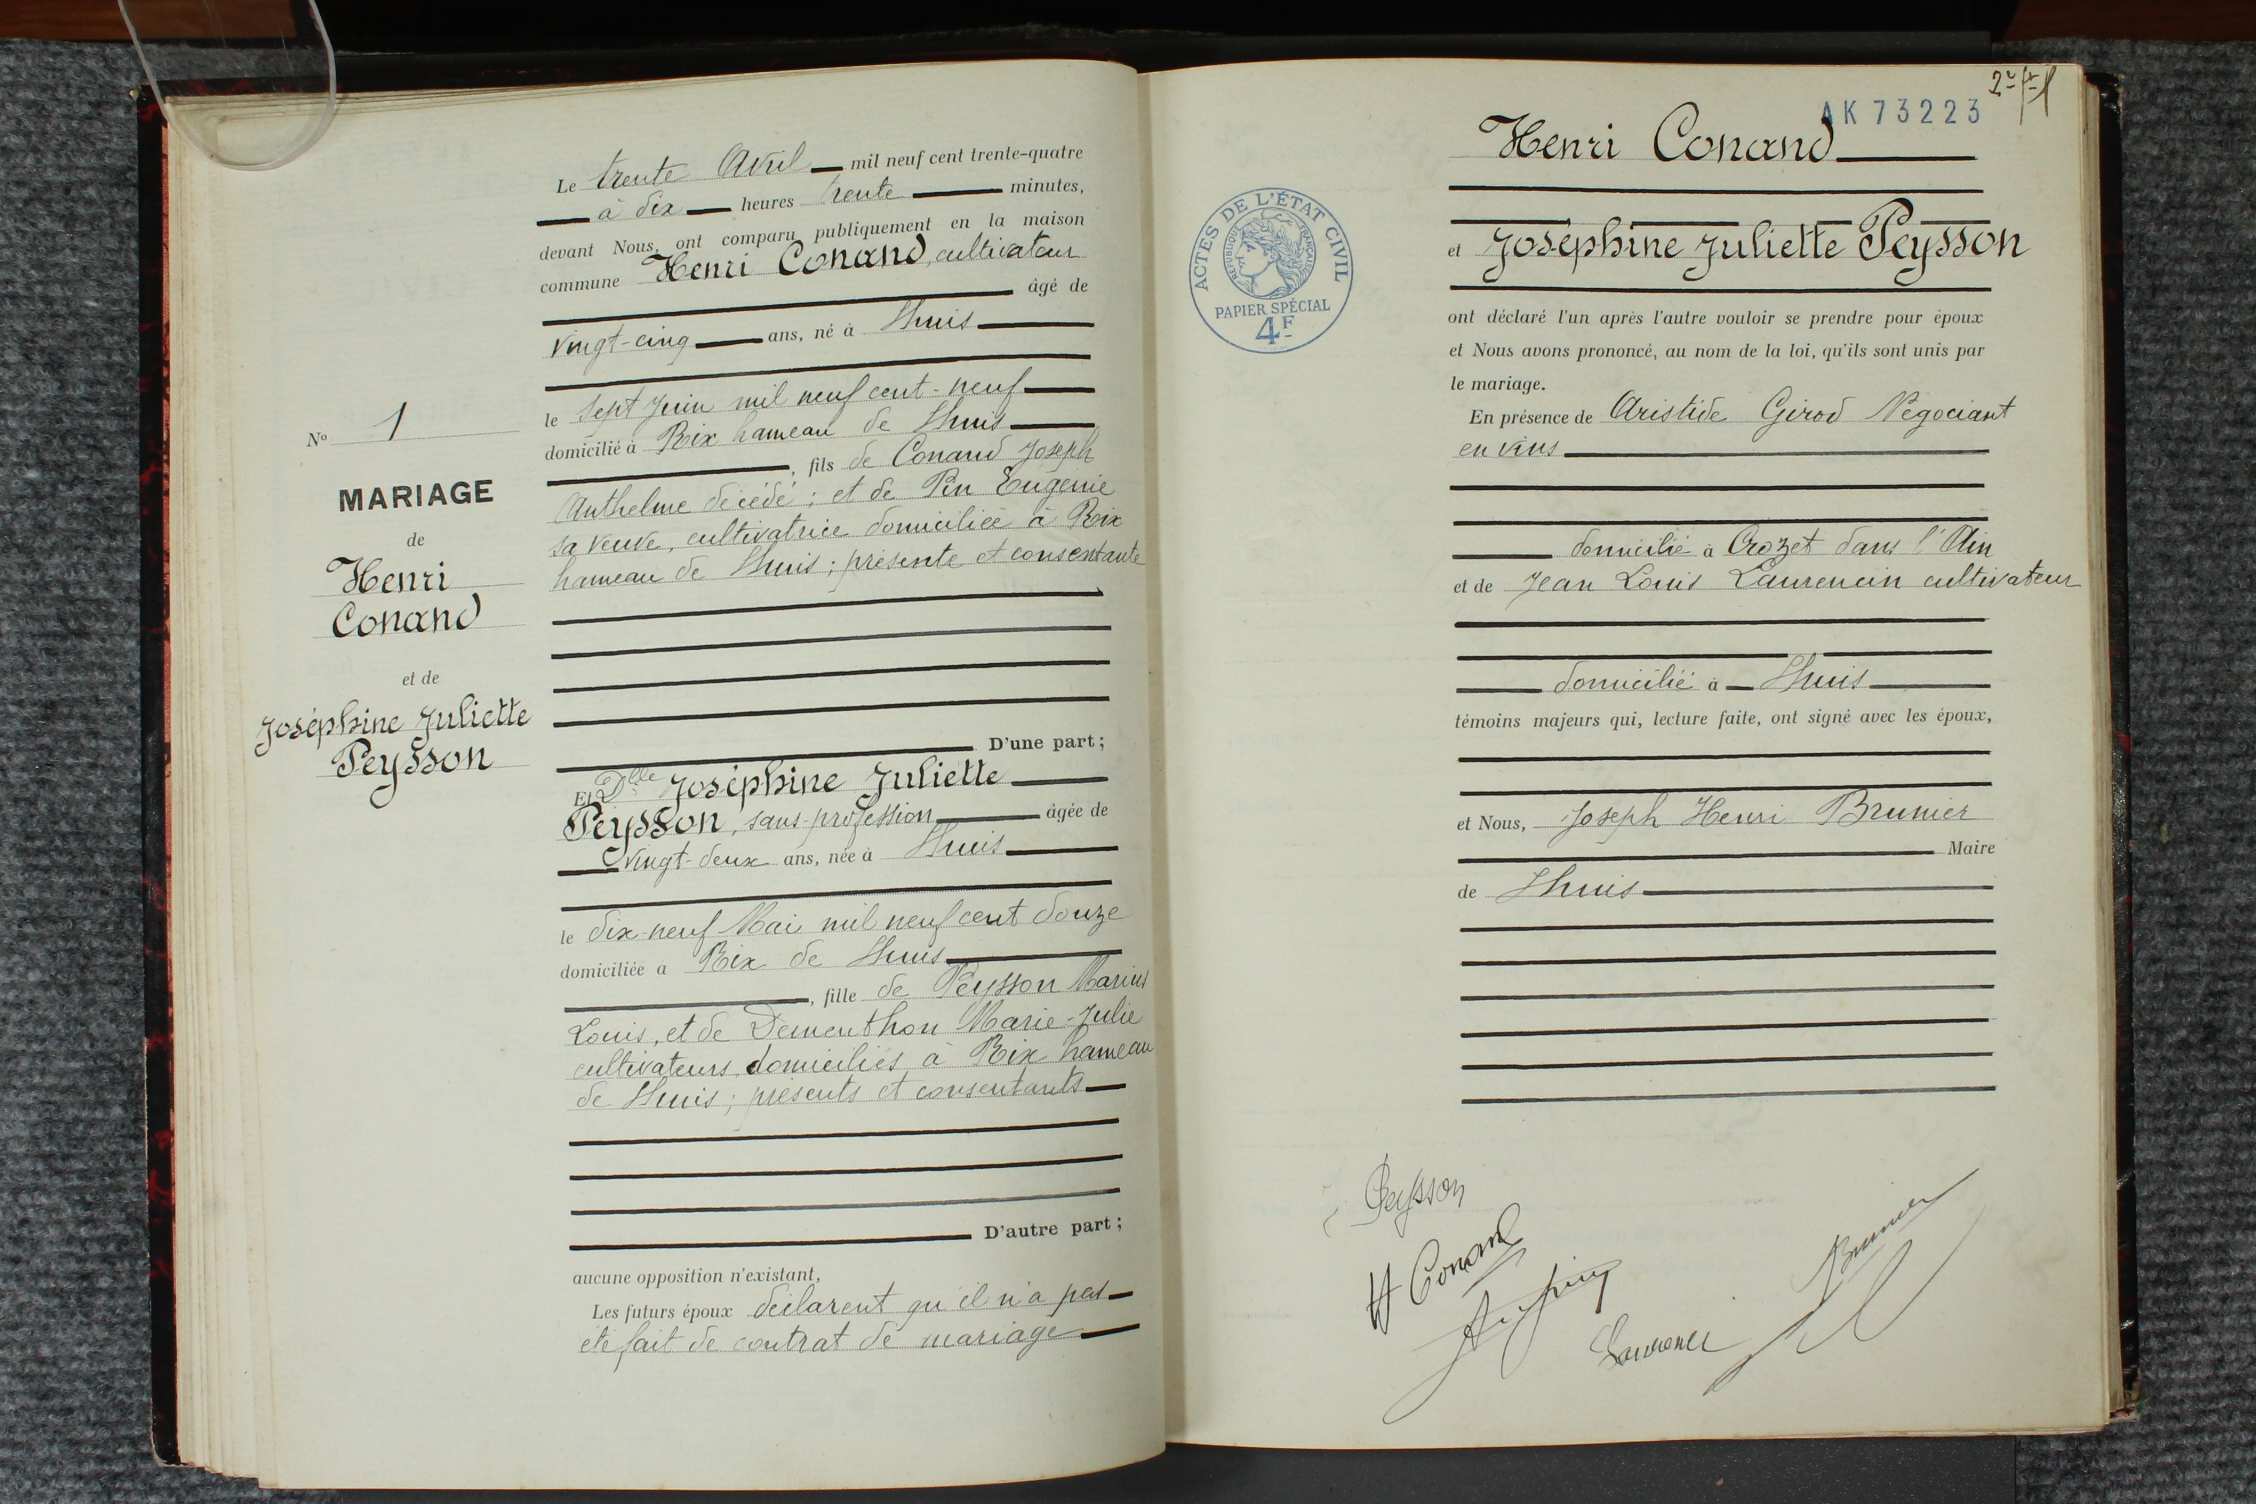 Nº 1
MARIAGE
de
Henri
Conand
et de
Joséphine Juliette
Peysson
Le trente Avril mil neuf cent trente-quatre
à dix heures trente minutes,
devant Nous, ont comparu publiquement en la maison
commune Henri Conand, cultivateur
âgé de
vingt-cinq ans, né à Lhuis
le sept Juin mil neuf cent-neuf
domicilié à Rix hameau de Lhuis
, fils de Conand Joseph
Anthelme décédé ; et de Pin Eugénie
sa veuve, cultivatrice domiciliée à Rix
hameau de Lhuis ; présente et consentante
D'une part ;
Et Dlle Joséphine Juliette
Peysson, sans-profession âgée de
vingt-deux ans, née à Lhuis
le dix-neuf Mai mil neuf cent douze
domiciliée a Rix de Lhuis
, fille de Peysson Marius
Louis, et de Dementhon Marie-Julie
cultivateurs domiciliés à Rix hameau
de Lhuis ; présents et consentants
D'autre part ;
aucune opposition n'existant,
Les futurs époux déclarent qu'il n'a pas
été fait de contrat de mariage
AK 73223
ACTES DE L'ÉTAT CIVIL
RÉPUBLIQUE FRANÇAISE
PAPIER SPÉCIAL
4F
Henri Conand
et Joséphine Juliette Peysson
ont déclaré l'un après l'autre vouloir se prendre pour époux
et Nous avons prononcé, au nom de la loi, qu'ils sont unis par
le mariage.
En présence de Aristide Girod Négociant
en vins
domicilié à Crozet dans l'Ain
et de Jean Louis Laurencin cultivateur
domicilié à Lhuis
témoins majeurs qui, lecture faite, ont signé avec les époux,
et Nous, Joseph Henri Brunier
Maire
de Lhuis
Peysson
H Conand
Brunier